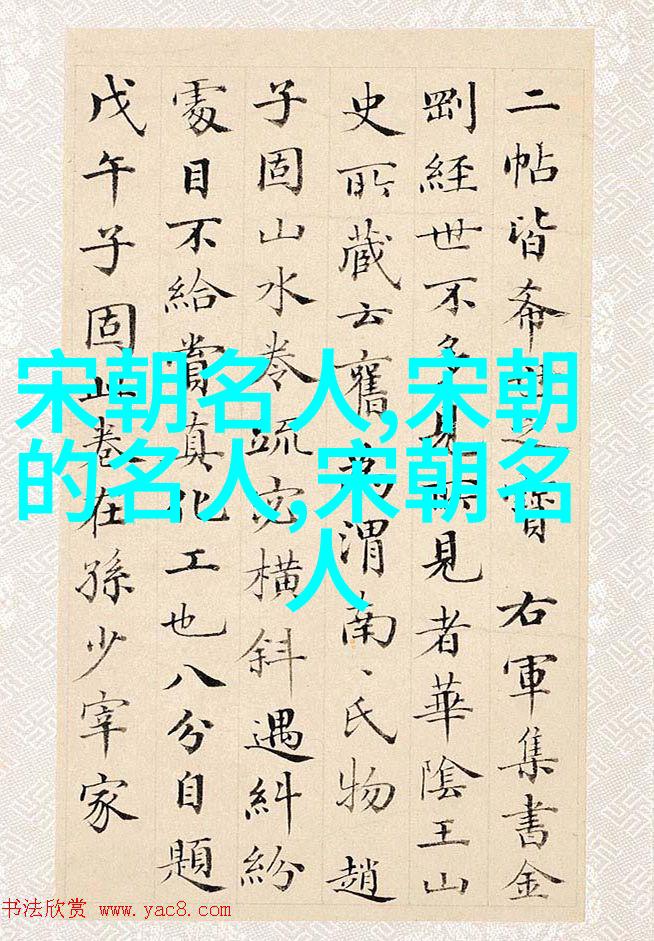 二帖皆希世之寶 右軍集書金
剛經世不多見所見者華陰王山
史所藏云舊為渭南、氏物趙
子固山水卷疏密横斜遇糾紛
處目不給賞真化工也八分自題
戊午子固此卷在孫少宰家
宋朝名人,宋朝
的名人,宋朝名
人
书法欣赏 www.yac8.com